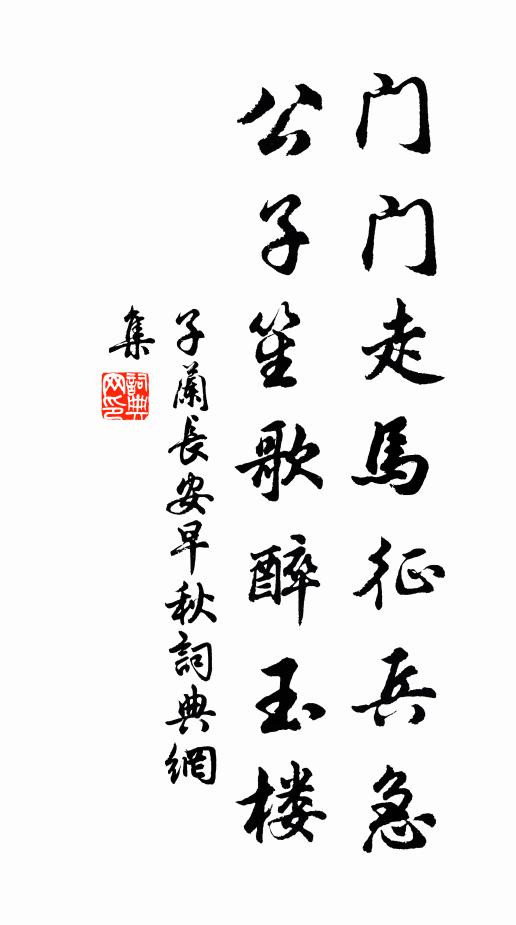 门门走馬征兵急
公子笙歌醉玉楼
子蘭長安早秋詞典網
集
詞典
网印